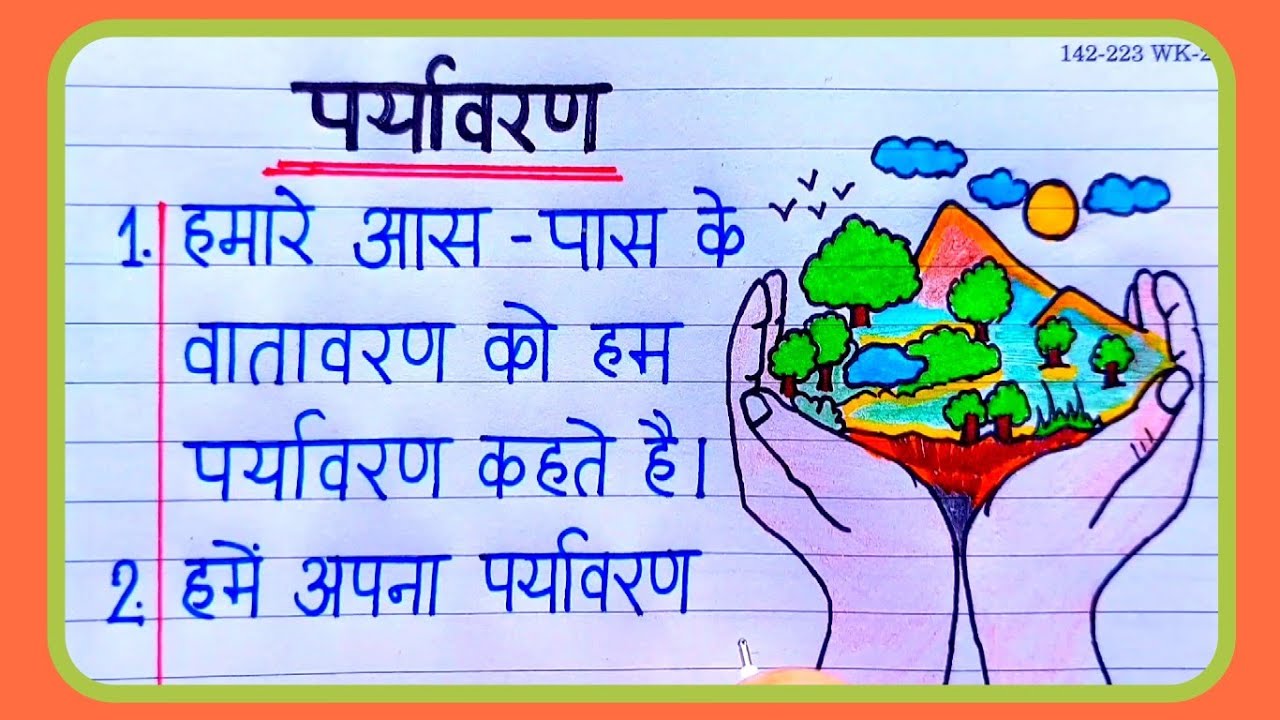 142-223 WK-2
पर्यावरण
1. हमारे आस-पास के
वातावरण को हम
पर्यावरण कहते है।
2. हमें अपना पर्यावरण